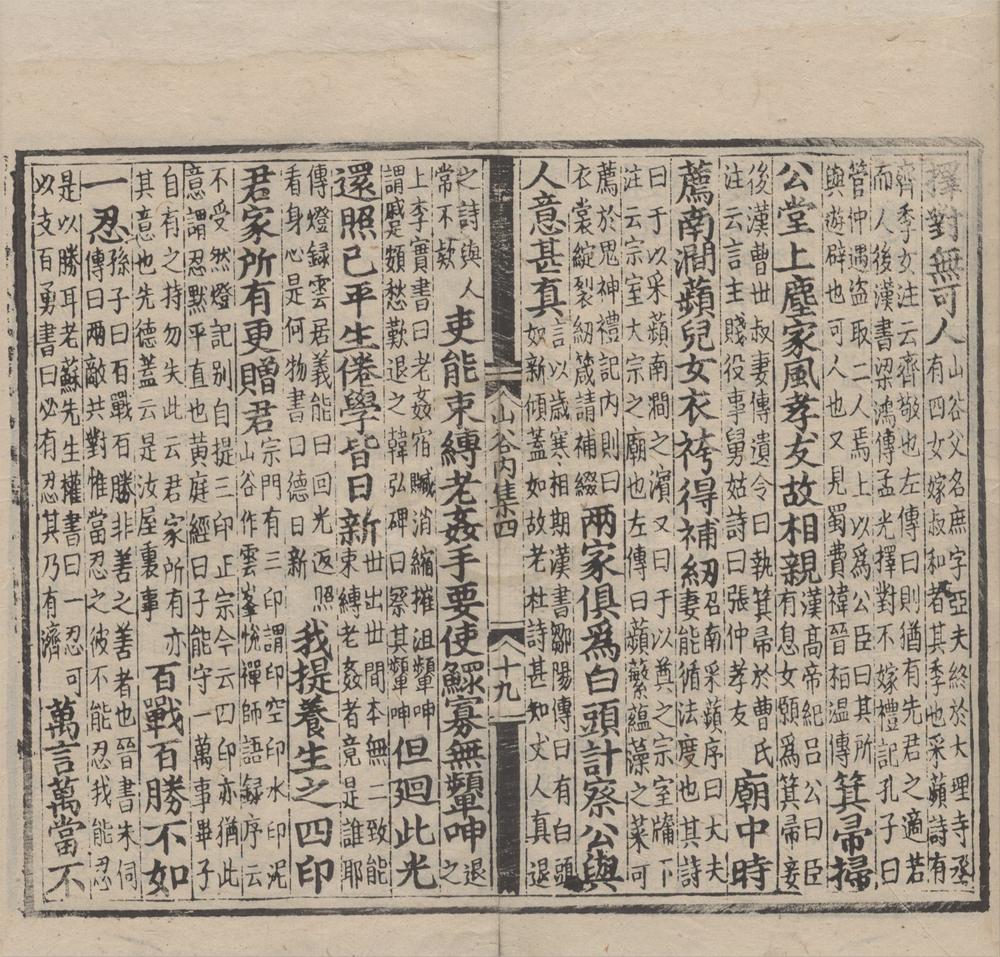 擇對無可人山谷父名庶字亞夫終於大理寺丞有四女嫁叔和者其季也采蘋詩有
齊季女注云齊敬也左傳曰則猶有先君之適若而人後漢書梁鴻傳孟光擇對不嫁禮記孔子曰
管仲遇盜取二人焉上以爲公臣曰其所與遊辟也可人也又見蜀費禕晉桓温傳箕帚掃
公堂上塵家風孝友故相親漢高帝紀呂公曰臣有息女願爲箕帚妾
後漢曹世叔妻傳遺令曰執箕帚於曹氏注云言主賤役事舅姑詩曰張仲孝友廟中時
薦南澗蘋兒女衣袴得補紉召南采蘋序曰大夫妻能循法度也其詩
曰于以采蘋南澗之濱又曰于以奠之宗室牖下注云宗室大宗之廟也左傳曰蘋蘩蘊藻之菜可
薦於鬼神禮記內則曰衣裳綻裂紉箴請補綴兩家俱爲白頭計察公與
人意甚真言以歲寒相期漢書鄒陽傳曰有白頭如新傾蓋如故老杜詩甚知丈人真退
山谷內集四
十九
之詩與人常不欵吏能束縛老姦手要使鰥寡無顰呻退之
上李實書曰老姦宿贓消縮摧沮顰呻謂戚嚬愁歎退之韓弘碑曰察其顰呻但廻此光
還照己平生倦學皆日新世出世間本無二致能束縛老姦者竟是誰耶
傳燈録雲居義能曰回光返照看身心是何物書曰德日新我提養生之四印
君家所有更贈君宗門有三印謂印空印水印泥山谷作雲峯悅禪師語録序云
不受然燈記别自提三印正宗今云四印亦猶此意謂忍默平直也黃庭經曰子能守一萬事畢子
自有之持勿失此云君家所有亦其意也先德蓋云是汝屋裏事百戰百勝不如
一忍孫子曰百戰百勝非善之善者也晉書朱伺傳曰兩敵共對惟當忍之彼不能忍我能忍
是以勝耳老蘇先生權書曰一忍可以支百勇書曰必有忍其乃有濟萬言萬當不